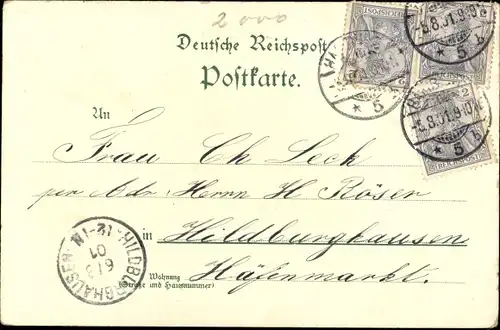 2000
Deutsche Reichspost
Postkarte.
REICHSPOST
-6.8.01.9-10V.
* 5 b
2
-6.8.01.9-10V.
* 5 b
REICHSPOST
* 5
An
Frau Ch Leck
per Adr. Herrn H Röser
in Hildburghausen
Häfenmarkt.
Wohnung
(Straße und Hausnummer)
HILDBURGHAUSEN
12-1N
6/8
01